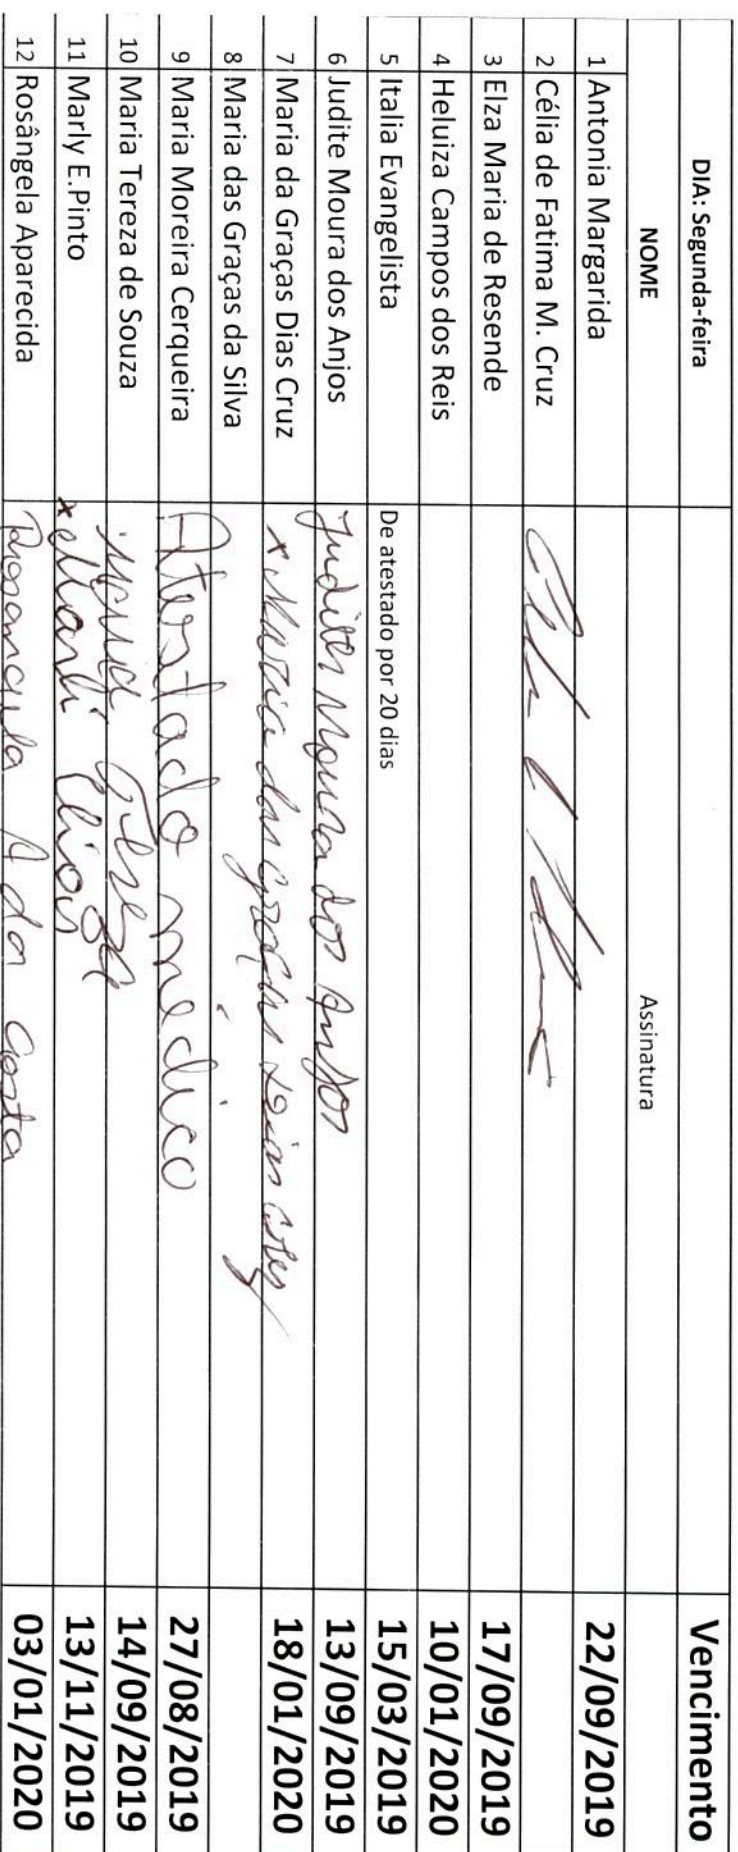 DIA: Segunda-feira Vencimento
NOME Assinatura
1 Antonia Margarida 22/09/2019
2 Célia de Fatima M. Cruz
3 Elza Maria de Resende 17/09/2019
4 Heluiza Campos dos Reis 10/01/2020
5 Italia Evangelista De atestado por 20 dias 15/03/2019
6 Judite Moura dos Anjos Judith Moura dos Anjos 13/09/2019
7 Maria da Graças Dias Cruz x Maria das graças Dias Cruz 18/01/2020
8 Maria das Graças da Silva
9 Maria Moreira Cerqueira Atestado médico 27/08/2019
10 Maria Tereza de Souza Maria Tereza 14/09/2019
11 Marly E.Pinto x Marli 13/11/2019
12 Rosângela Aparecida Rosangela A da Costa 03/01/2020